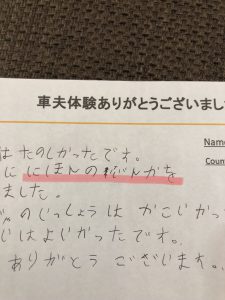 車夫体験ありがとうございまし
Name
Coun
はたのしかったです。
に にほんの ぶんかを
ました。
のじっしょうは かこいかっ
じはよいかったです。
ありがとう ございます。